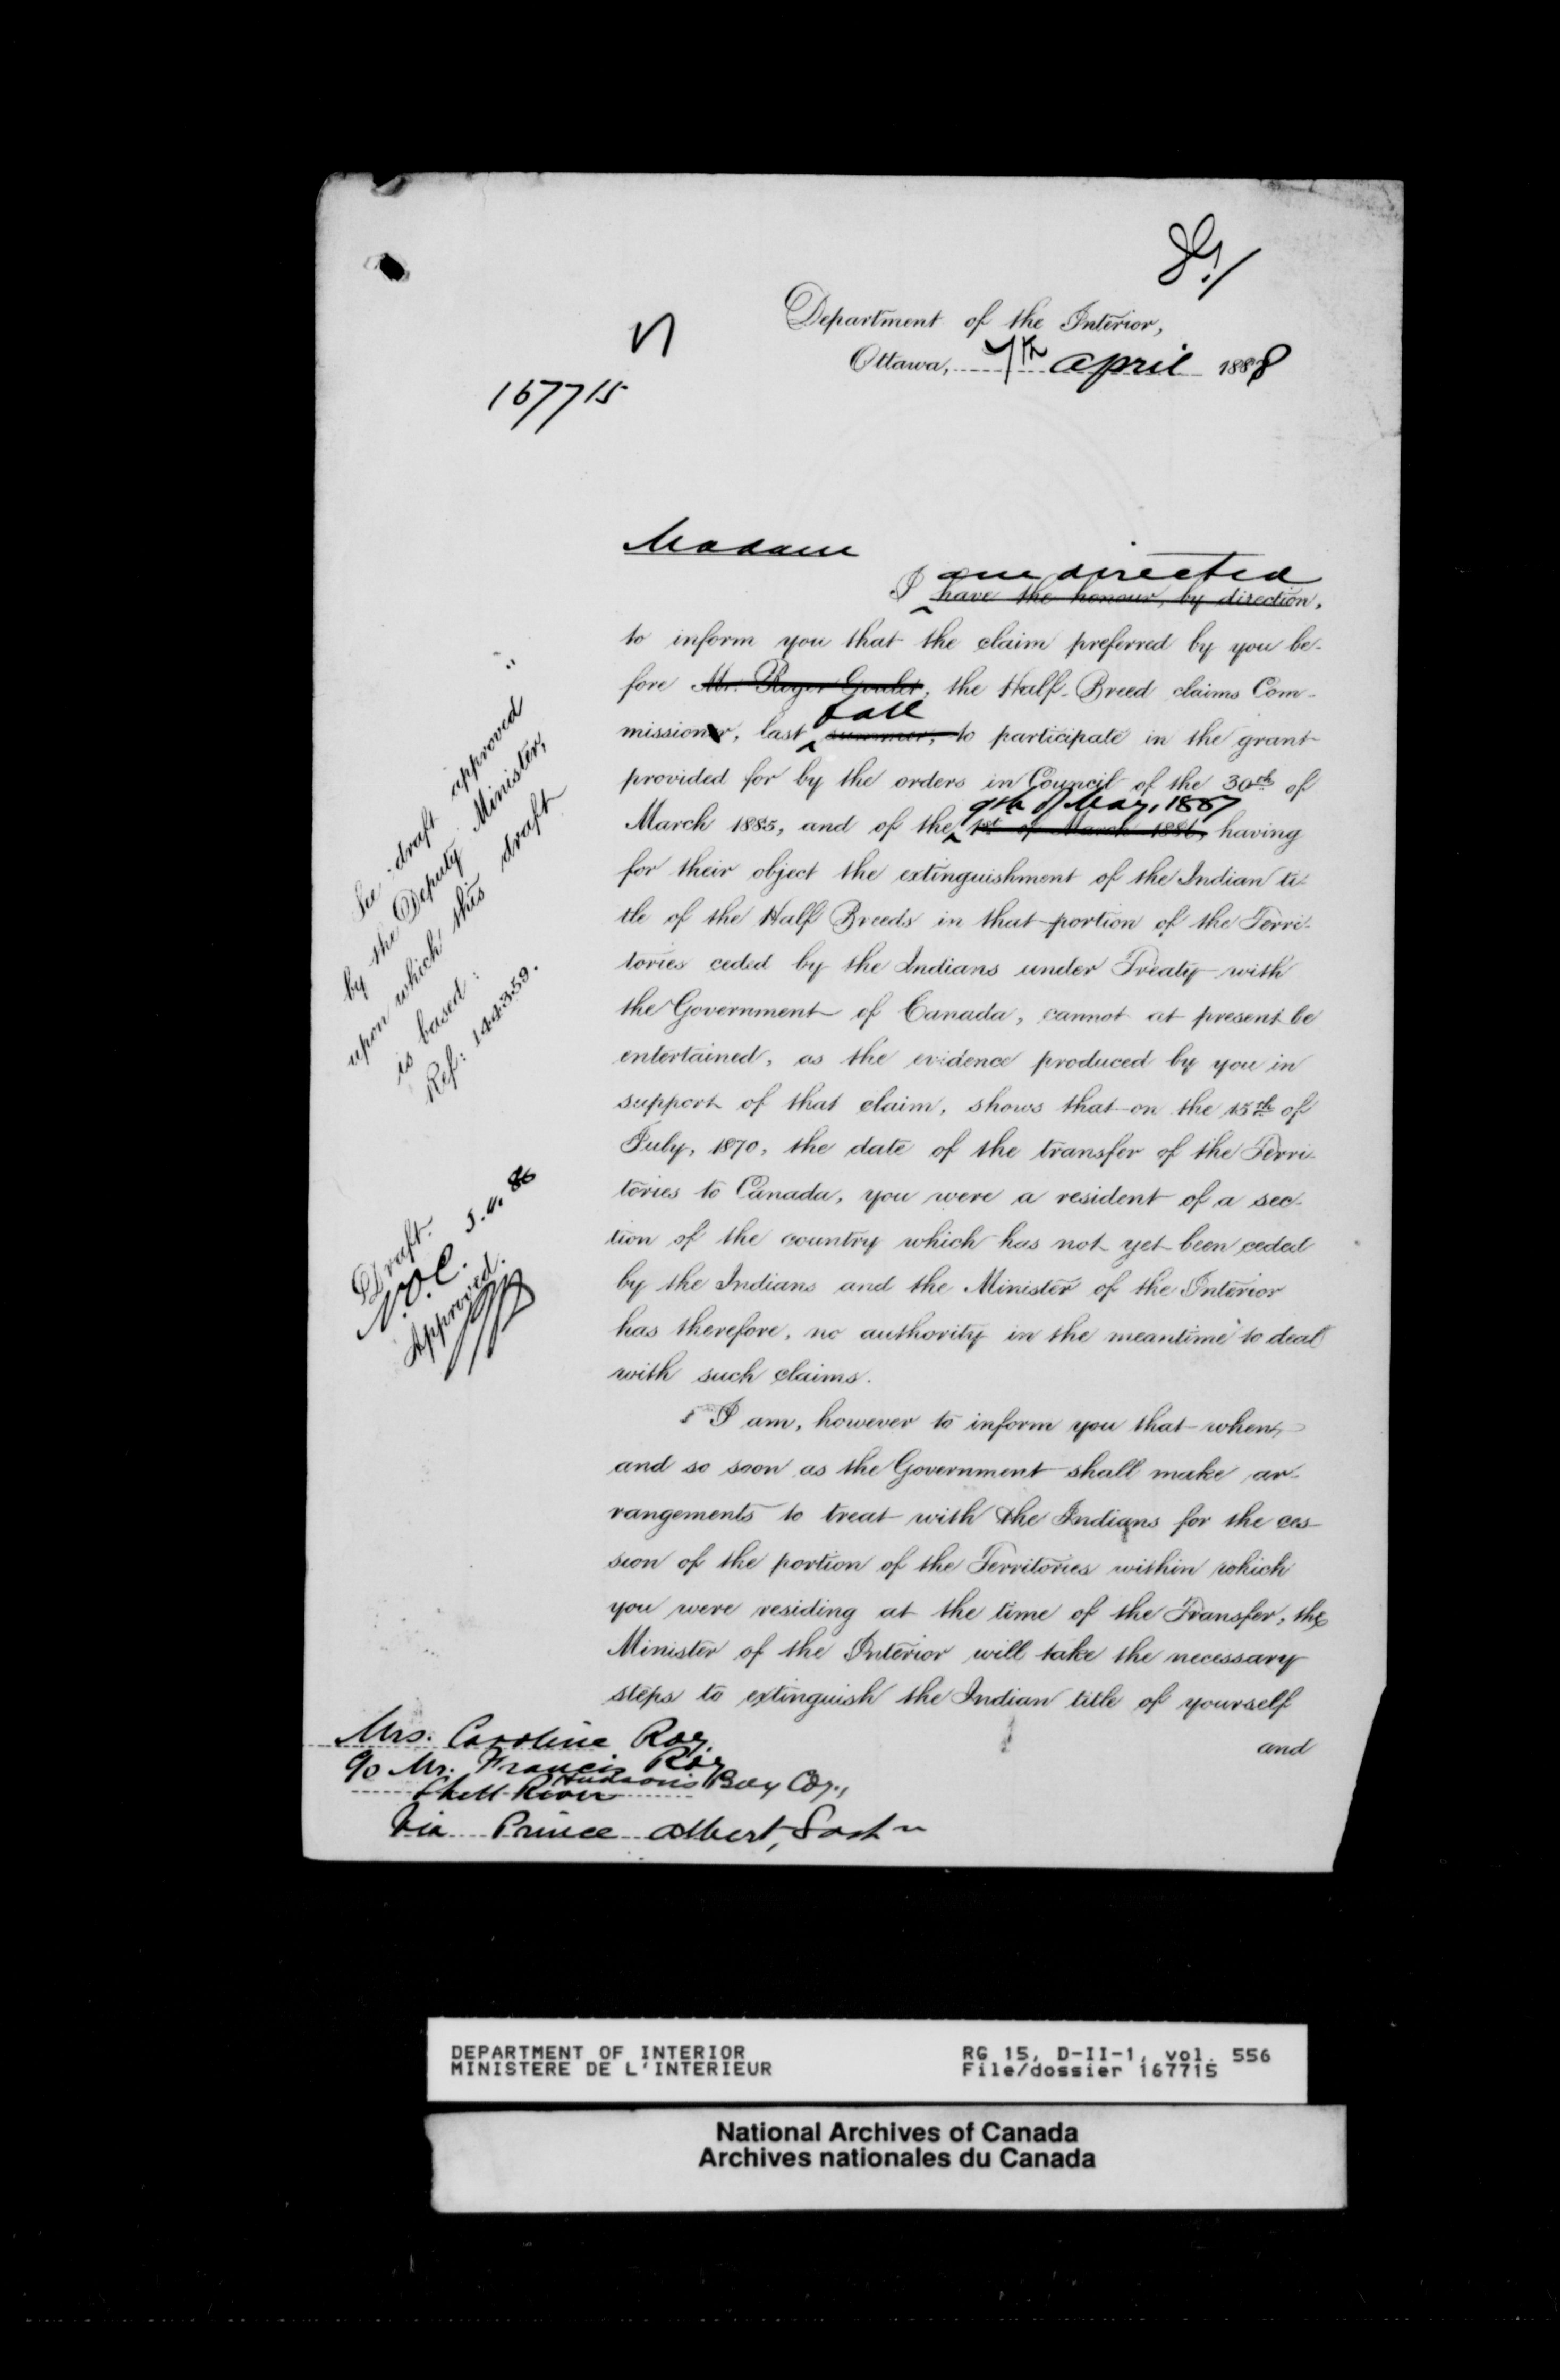 Department of the Interior,
Ottawa, 7th April 1888
167715
Madam
am directed
I have the honour, by direction,
to inform you that the claim preferred by you be-
fore Mr. Roger Goulet, the Half-Breed claims Com-
fall
missioner, last summer, to participate in the grant
provided for by the orders in Council of the 30th of
9th of May, 1887
March 1885, and of the 1st of March 1886, having
for their object the extinguishment of the Indian ti-
tle of the Half Breeds in that portion of the Terri-
tories ceded by the Indians under Treaty with
the Government of Canada, cannot at present be
entertained, as the evidence produced by you in
support of that claim, shows that on the 15th of
July, 1870, the date of the transfer of the Terri-
tories to Canada, you were a resident of a sec-
tion of the country which has not yet been ceded
by the Indians and the Minister of the Interior
has therefore, no authority in the meantime to deal
with such claims.
I am, however to inform you that when,
and so soon as the Government shall make ar-
rangements to treat with the Indians for the ces-
sion of the portion of the Territories within which
you were residing at the time of the Transfer, the
Minister of the Interior will take the necessary
steps to extinguish the Indian title of yourself
and
See draft approved
by the Deputy Minister,
upon which this draft
is based:
Ref: 144359.
Draft.
N.O.C. 5.4.86
Approved.
Mrs. Caroline Roy.
c/o Mr. Francis Roy
Hudson's Bay Coy.,
Shell River
Via Prince Albert, Sask
DEPARTMENT OF INTERIOR
MINISTERE DE L'INTERIEUR
RG 15, D-II-1, vol. 556
File/dossier 167715
National Archives of Canada
Archives nationales du Canada